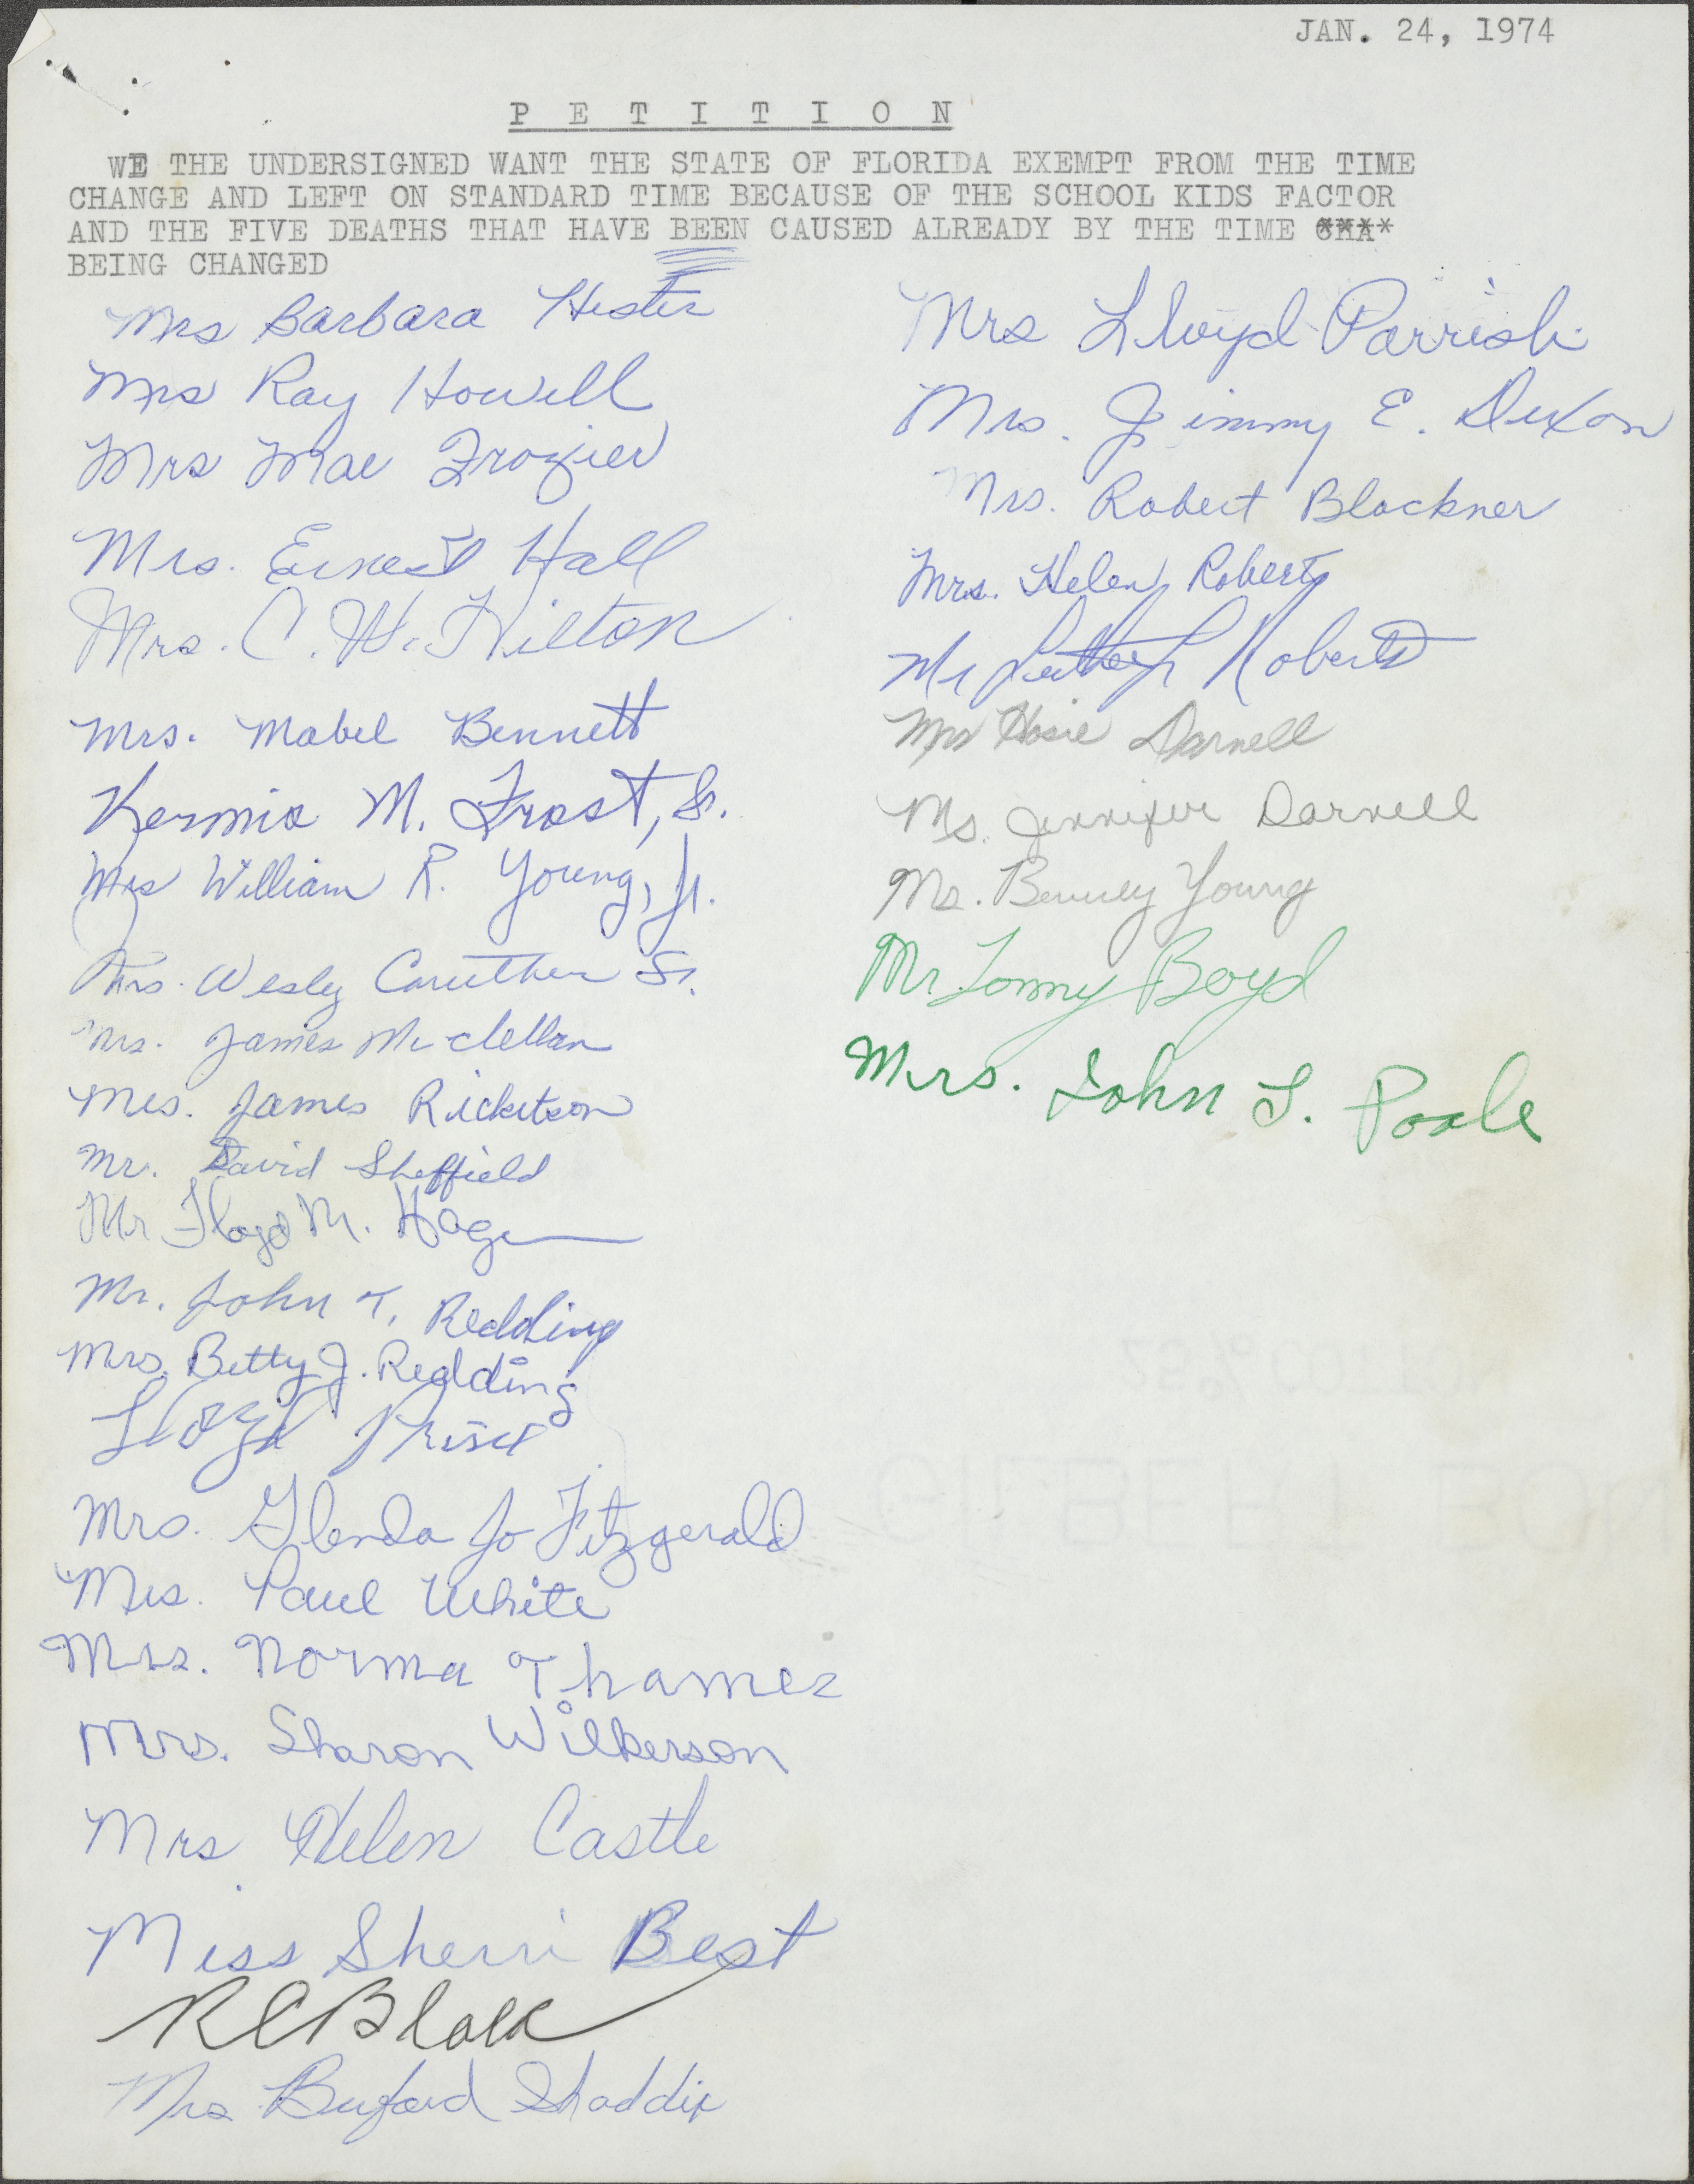 JAN. 24, 1974
P E T I T I O N
WE THE UNDERSIGNED WANT THE STATE OF FLORIDA EXEMPT FROM THE TIME
CHANGE AND LEFT ON STANDARD TIME BECAUSE OF THE SCHOOL KIDS FACTOR
AND THE FIVE DEATHS THAT HAVE BEEN CAUSED ALREADY BY THE TIME
BEING CHANGED
Mrs Barbara Hester
Mrs Ray Howell
Mrs Mae Frozier
Mrs. Ernest Hall
Mrs. C. W. Hilton
Mrs. Mabel Bennett
M. Frost, Sr.
Mrs William R. Young, Jr.
Mrs. Wesley Caruther Sr.
Mrs. James McClellan
Mrs. James Ricketson
Mr. David Sheffield
Mr Floyd M. Hagen
Mr. John T. Redding
Mrs. Betty J. Redding
Lloyd
Mrs. Glenda Jo Fitzgerald
Mrs. Paul White
Mrs. Norma Thames
Mrs. Sharon Wilkerson
Mrs Helen Castle
Miss Sherri Best
R C Black
Mrs Buford Shaddix
Mrs Lloyd Parrish
Mrs. Jimmy E. Dixon
Mrs. Robert Blackner
Mrs. Helen Roberts
Mr Luther Roberts
Mrs Darnell
Ms. Jennifer Darnell
Mr. Young
Mr. Tommy Boyd
Mrs. John L. Poole